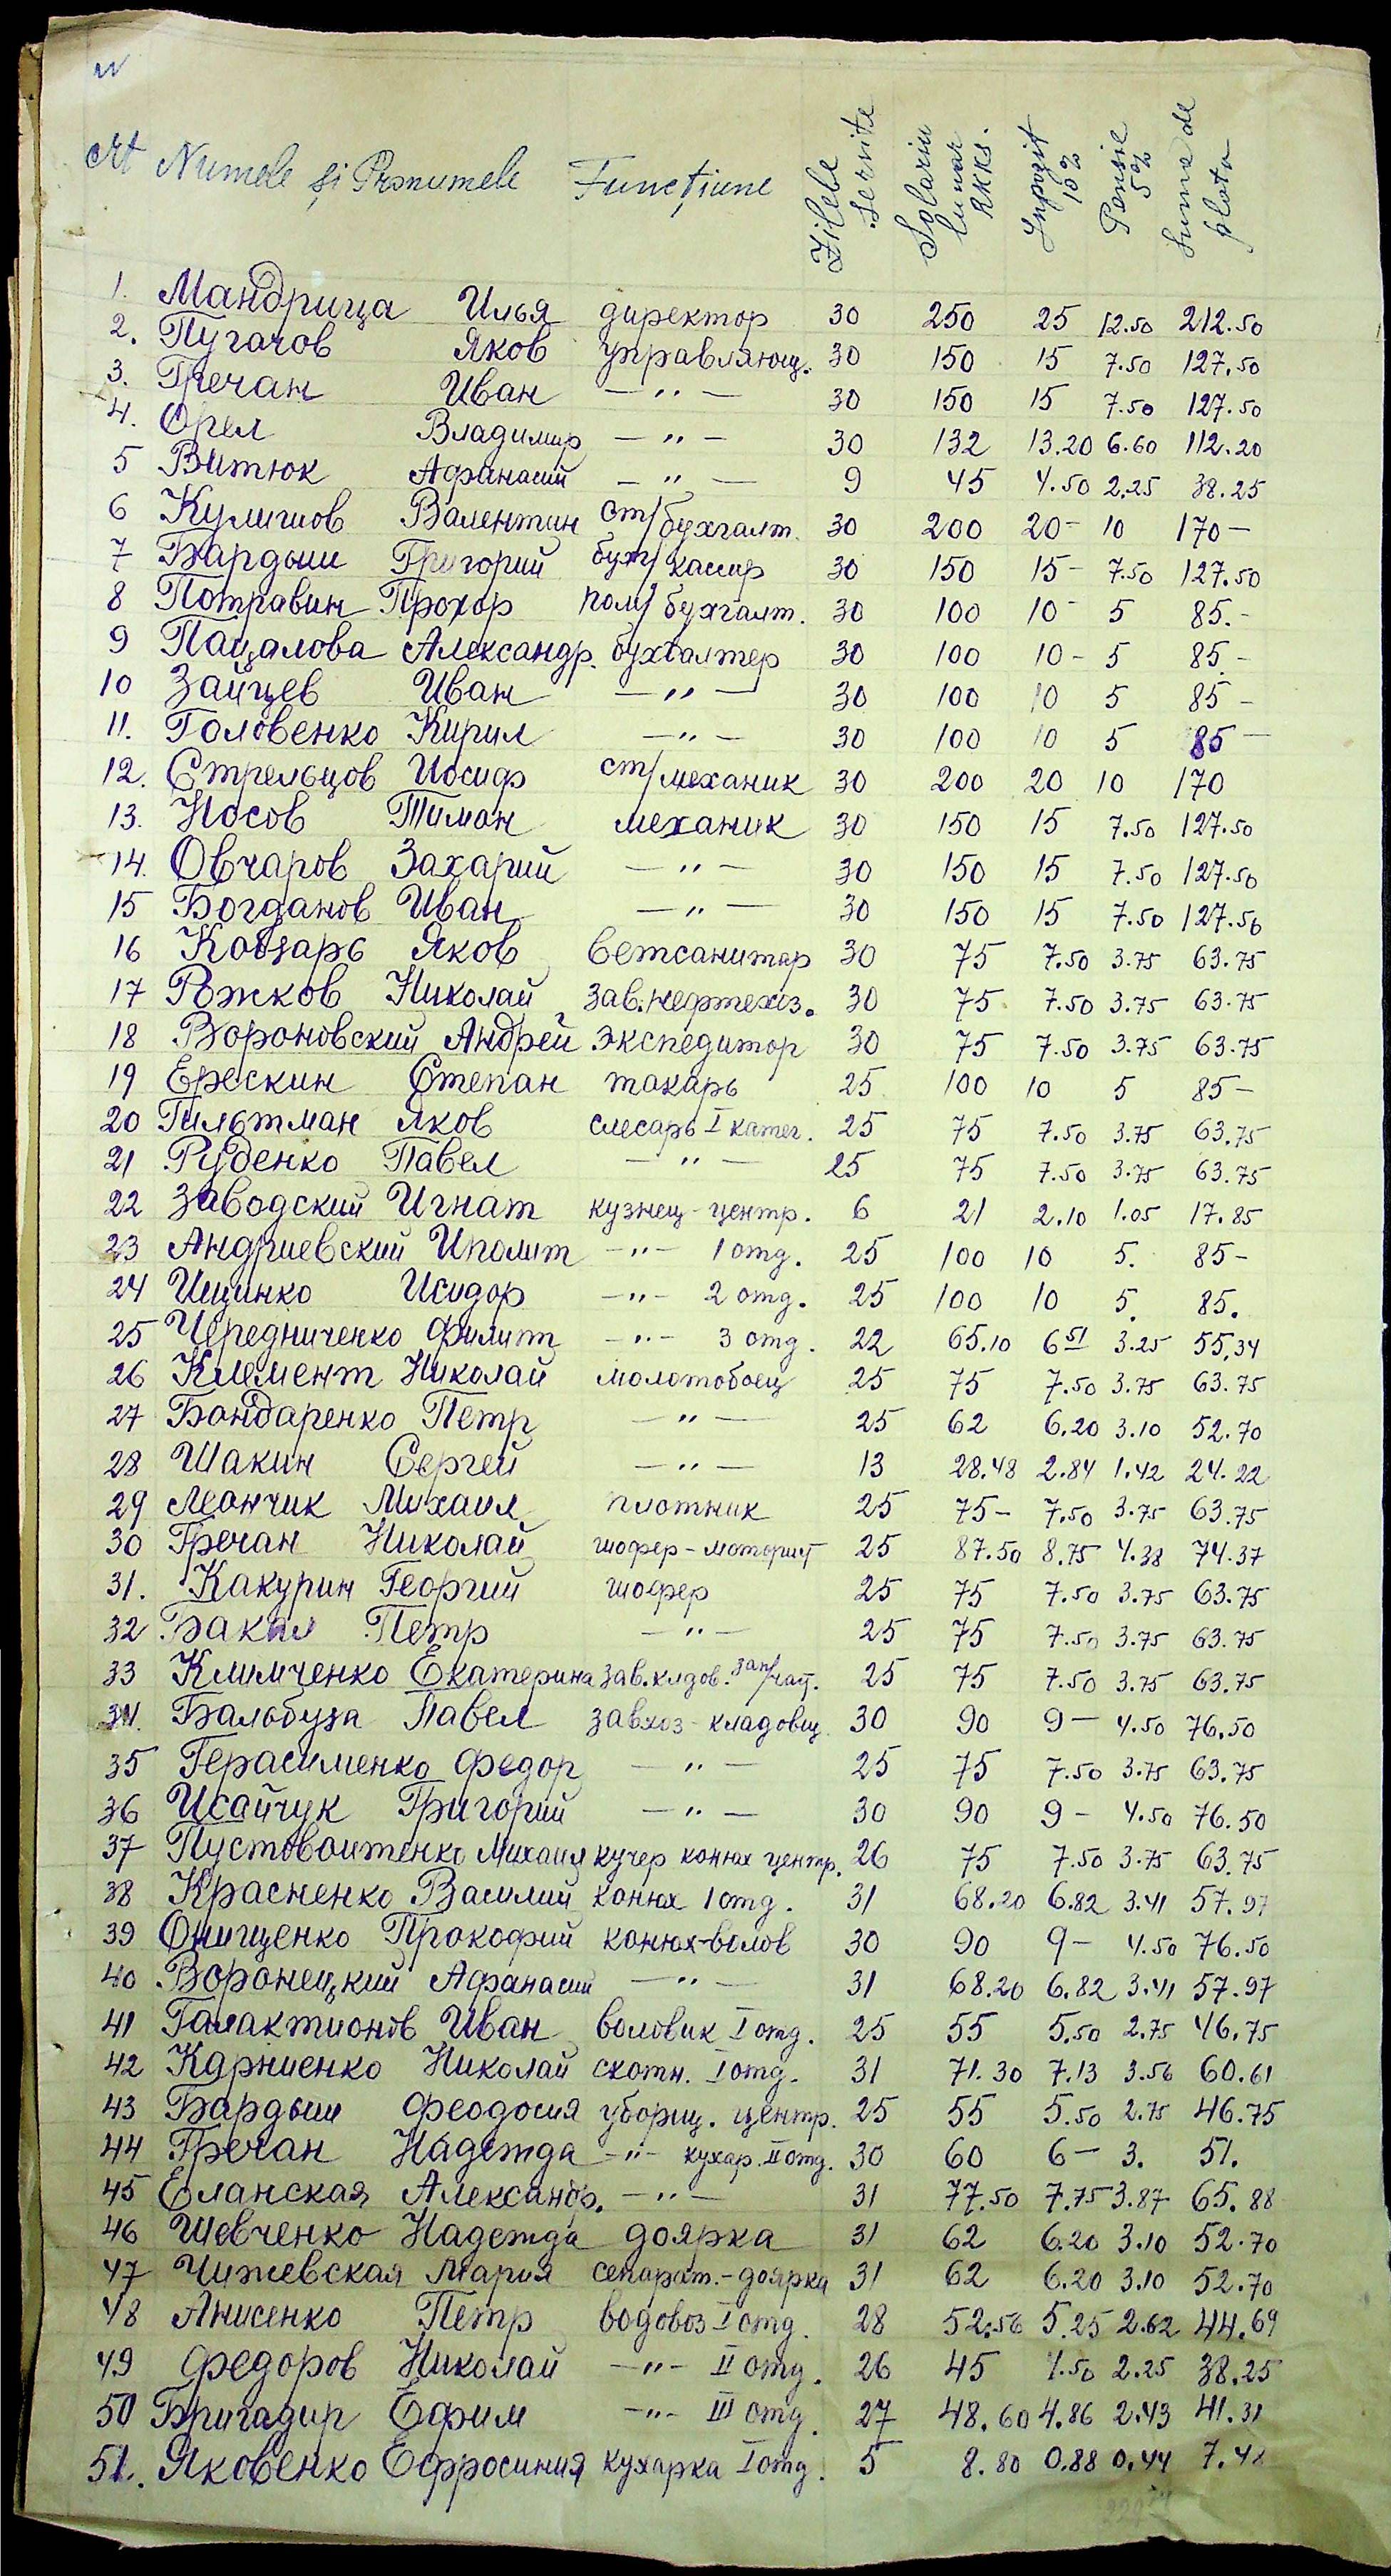 № Numele și Pronumele Funcțiune Zilele servite Salariu lunar RKKS. Impozit 10% Pensie 5% Suma de plata
1. Мандрица Илья директор 30 250 25 12.50 212.50
2. Пугачов Яков управляющ. 30 150 15 7.50 127.50
3. Гречан Иван — " — 30 150 15 7.50 127.50
4. Орел Владимир — " — 30 132 13.20 6.60 112.20
5 Витюк Афанасий — " — 9 45 4.50 2.25 38.25
6 Кулишов Валентин ст/бухгалт. 30 200 20- 10 170-
7 Бардыш Григорий бухг/кассир 30 150 15- 7.50 127.50
8 Потравин Прохор пом/бухгалт. 30 100 10- 5 85.-
9 Пацалова Александр. бухгалтер 30 100 10- 5 85.-
10 Зайцев Иван — " — 30 100 10 5 85-
11. Головенко Кирил — " — 30 100 10 5 85-
12. Стрельцов Иосиф ст/механик 30 200 20 10 170
13. Носов Тиман механик 30 150 15 7.50 127.50
14. Овчаров Захарий — " — 30 150 15 7.50 127.50
15 Богданов Иван — " — 30 150 15 7.50 127.50
16 Кобзарь Яков ветсанитар 30 75 7.50 3.75 63.75
17 Рожков Николай зав.нефтехоз. 30 75 7.50 3.75 63.75
18 Вороновский Андрей экспедитор 30 75 7.50 3.75 63.75
19 Ерескин Степан токарь 25 100 10 5 85-
20 Гильтман Яков слесарь I катег. 25 75 7.50 3.75 63.75
21 Руденко Павел — " — 25 75 7.50 3.75 63.75
22 Заводский Игнат кузнец-центр. 6 21 2.10 1.05 17.85
23 Андриевский Иполит -"- 1 отд. 25 100 10 5. 85-
24 Ищинко Исидор -"- 2 отд. 25 100 10 5. 85.
25 Чередниченко Филипп -"- 3 отд. 22 65.10 6 51 3.25 55.34
26 Клемент Николай молотобоец 25 75 7.50 3.75 63.75
27 Бондаренко Петр — " — 25 62 6.20 3.10 52.70
28 Шакин Сергей — " — 13 28.48 2.84 1.42 24.22
29 Леончик Михаил плотник 25 75- 7.50 3.75 63.75
30 Гречан Николай шофер-моторист 25 87.50 8.75 4.38 74.37
31. Какурин Георгий шофер 25 75 7.50 3.75 63.75
32 Бакал Петр — " — 25 75 7.50 3.75 63.75
33 Климченко Екатерина зав.клдов. зап/част. 25 75 7.50 3.75 63.75
34. Бальбуза Павел завхоз-кладовщ. 30 90 9- 4.50 76.50
35 Герасименко Федор — " — 25 75 7.50 3.75 63.75
36 Исайчук Григорий — " — 30 90 9- 4.50 76.50
37 Пустовоитенко Михаил кучер конюх центр. 26 75 7.50 3.75 63.75
38 Красненко Василий конюх 1 отд. 31 68.20 6.82 3.41 57.97
39 Онищенко Прокофий конюх-волов 30 90 9- 4.50 76.50
40 Воронецкий Афанасий — " — 31 68.20 6.82 3.41 57.97
41 Галактионов Иван воловик I отд. 25 55 5.50 2.75 46.75
42 Карниенко Николай скотн. I отд. 31 71.30 7.13 3.56 60.61
43 Бардыш Феодосия уборщ. центр. 25 55 5.50 2.75 46.75
44 Гречан Надежда -"- кухар. II отд. 30 60 6- 3. 51.
45 Еланская Александр. — " — 31 77.50 7.75 3.87 65.88
46 Шевченко Надежда доярка 31 62 6.20 3.10 52.70
47 Чижевская Мария сепарат.-доярка 31 62 6.20 3.10 52.70
48 Анисенко Петр водовоз I отд. 28 52.56 5.25 2.62 44.69
49 Федоров Николай -"- II отд. 26 45 4.50 2.25 38.25
50 Бригадир Ефим -"- III отд. 27 48.60 4.86 2.43 41.31
51. Яковенко Ефросиния кухарка I отд. 5 8.80 0.88 0.44 7.48